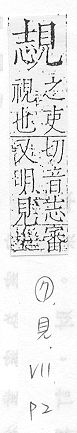 覟
之吏切音志審
視也又明見
⑦ 見 VII
P2